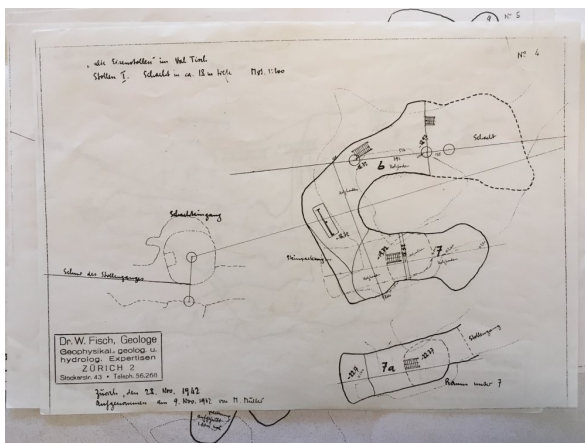 9 N° 5
N° 4
„alte Eisenstollen" im Val Tisch
Stollen I. Schacht in ca. 18 m Tiefe Mst. 1:100
Schacht
6
Schachteingang
Steinpackung
7
Schnur des Stollenganges
Stollengang
7a
Raum unter 7
Dr. W. Fisch, Geologe
Geophysikal., geolog. u.
hydrolog. Expertisen
ZÜRICH 2
Stockerstr. 43 • Teleph. 56.266
Zürich, den 28. Nov. 1942
Aufgenommen am 9. Nov. 1942 von M. Müller